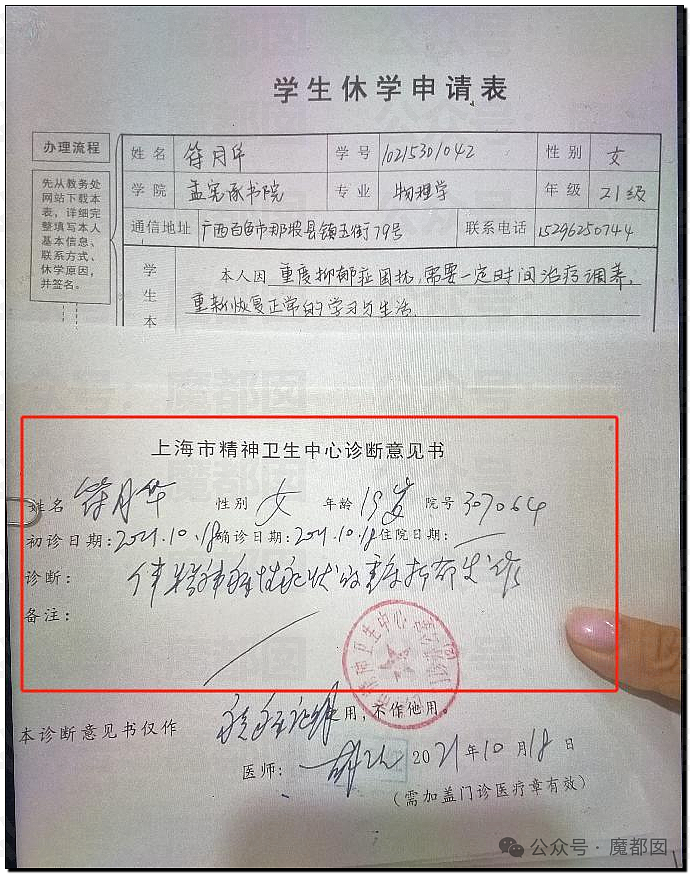 学生休学申请表
办理流程
先从教务处
网站下载本
表，详细完
整填写本人
基本信息、
联系方式、
休学原因，
并签名。
姓名 符月华 学号 10215301042 性别 女
学院 孟宪承书院 专业 物理学 年级 21级
通信地址 广西百色市那坡县镇玉街79号 联系电话 15296250744
学
生
本
本人因 重度抑郁症困扰，需要一定时间治疗调养，
重新恢复正常的学习与生活
上海市精神卫生中心诊断意见书
姓名 符月华 性别 女 年龄 19岁 院号 307064
初诊日期：2021.10.18 确诊日期：2021.10.18 住院日期：
诊断： 伴精神病性症状的重度抑郁发作
备注：
本诊断意见书仅作 用，不作他用。
医师： 2021年10月18日
（需加盖门诊医疗章有效）
公众号·魔都囡